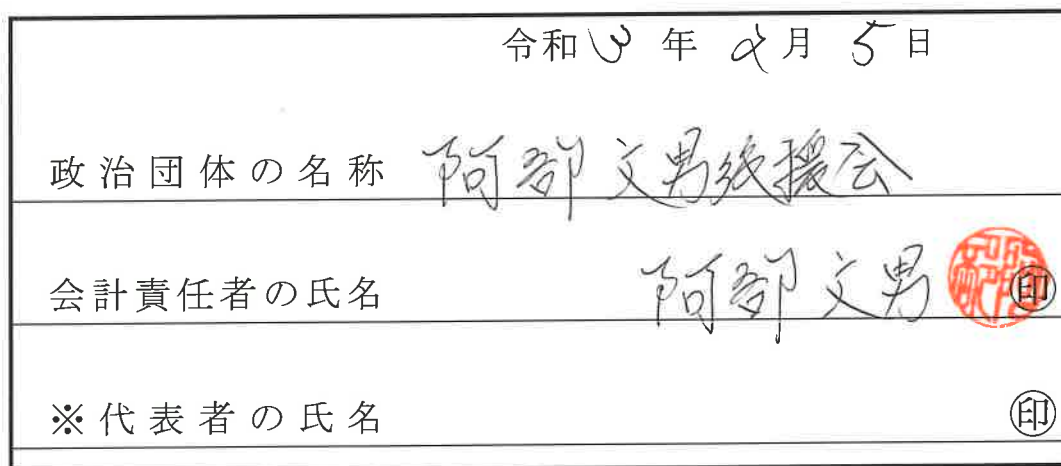 令和3年2月5日
政治団体の名称 阿部文男後援会
会計責任者の氏名 阿部文男 印
※代表者の氏名 印